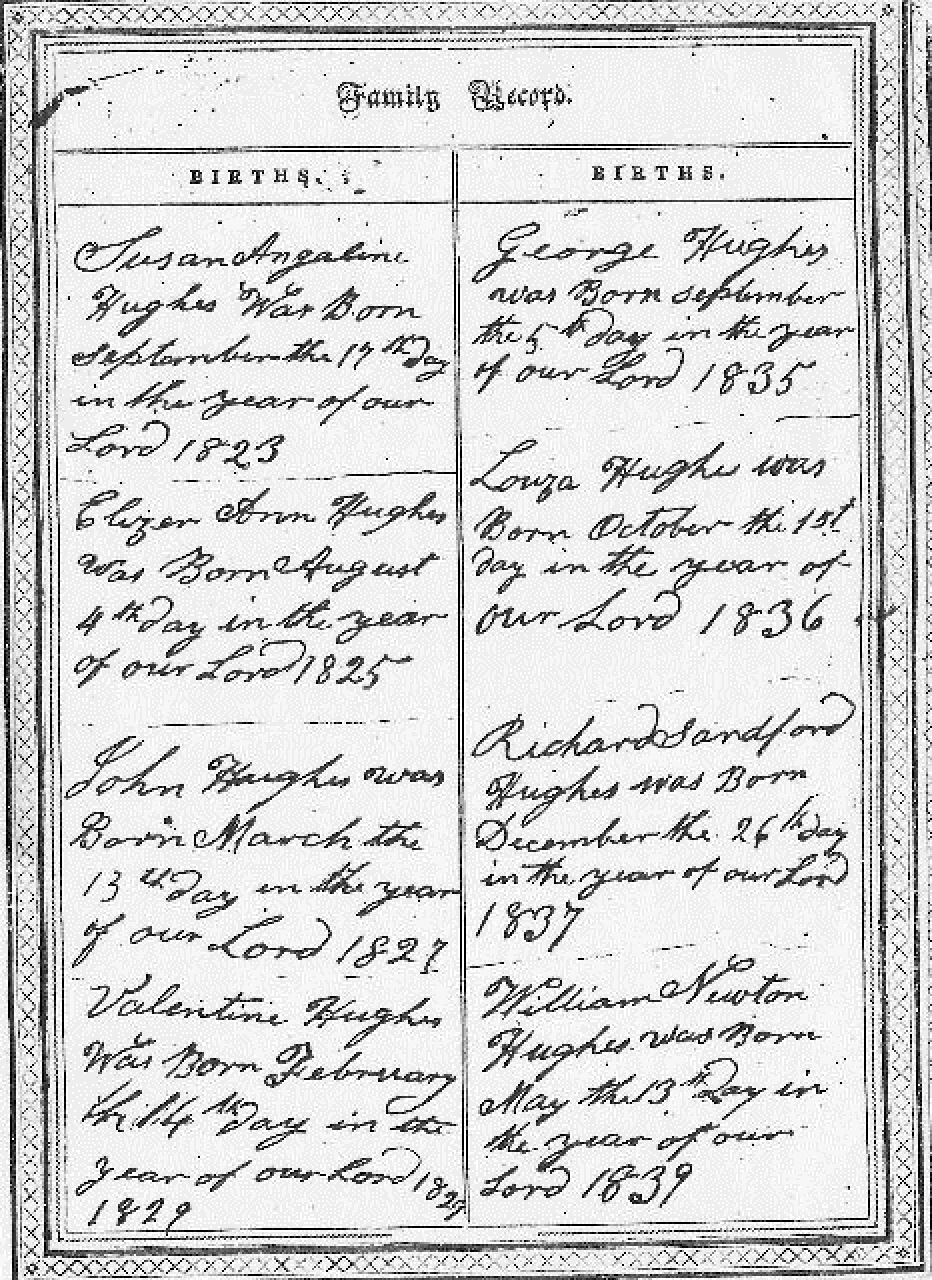 Family Record.
BIRTHS.
Susan Angaline
Hughes Was Born
September the 17th day
in the year of our
Lord 1823
Elizer Ann Hughes
Was Born August
4th day in the year
of our Lord 1825
John Hughes was
Born March the
13th day in the year
of our Lord 1827
Valentine Hughes
Was Born February
the 14th day in the
year of our Lord 1829
1829
BIRTHS.
George Hughes
was Born september
the 5th day in the year
of our Lord 1835
Louza Hughs was
Born October the 1st
day in the year of
our Lord 1836
Richard Sandford
Hughes was Born
December the 26th day
in the year of our Lord
1837
William Newton
Hughes was Born
May the 13th Day in
the year of our
Lord 1839